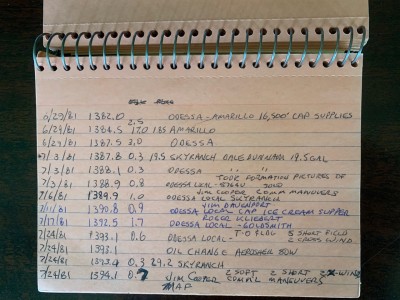 6/29/81 1382.0 ODESSA-AMARILLO 16,500' CAP SUPPLIES
2.5
6/29/81 1384.5 17.0 1.85 AMARILLO
6/29/81 1387.5 3.0 ODESSA
7/3/81 1387.8 0.3 19.5 SKYRANCH DALE DUNNAHA 19.5 GAL
7/3/81 1388.1 0.3 ODESSA " "
TOOK FORMATION PICTURES OF
7/3/81 1388.9 0.8 ODESSA LOCAL-
JIM COOPER COMM MANUVERS
7/6/81 1389.9 1.0 ODESSA LOCAL SKYRANCH
JIM DAVENPORT
7/11/81 1390.8 0.9 ODESSA LOCAL CAP ICE CREAM SUPPER
ROGER KLIEBERT
7/17/81 1392.5 1.7 ODESSA LOCAL-GOLDSMITH
T-O FLAG 3 SHORT FIELD
7/24/81 1393.1 0.6 ODESSA LOCAL- 2 CROSS WIND
7/24/81 1393.1 OIL CHANGE AEROSHELL 50W
7/24/81 0.3 29.2 SKYRANCH
7/24/81 1394.1 0.7 2 SOFT 2 SHORT 2 X-WIND
JIM COOPER COM'L MANEUVERS
MAF